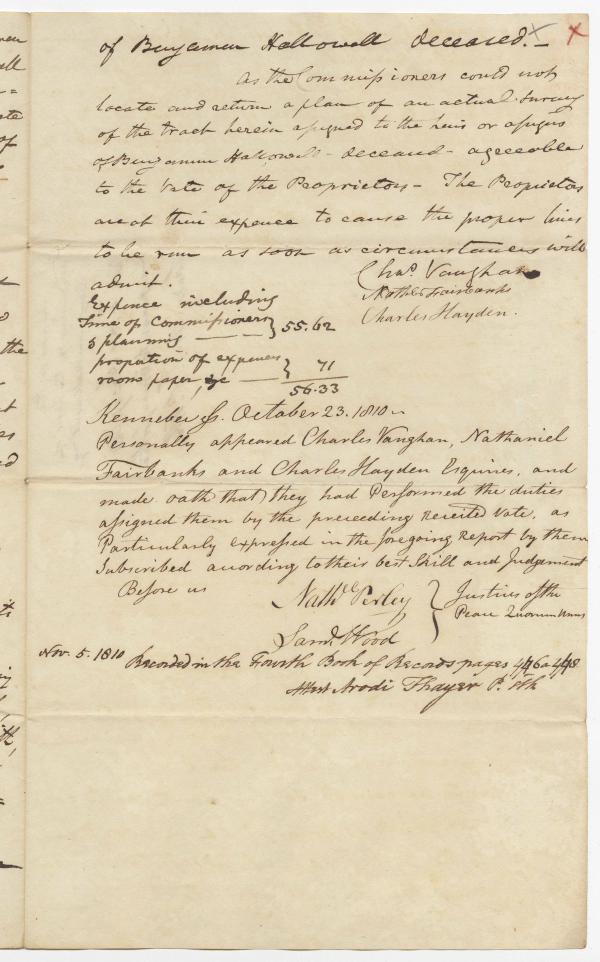 of Benjamin Hallowell deceased. –
As the Commissioners could not
locate and return a plan of an actual Survey
of the tract herein assigned to the heirs or assigns
of Benjamin Hallowell – deceased – agreeable
to the Vote of the Proprietors – The Proprietors
are at their expence to cause the proper lines
to be run as soon as circumstances will
admit.
Chas. Vaughan
Nathl Fairbanks
Charles Hayden.
Expence including
Time of Commissioners
& planning — } 55.62
proportion of expenses
room paper, &c — } 71
56.33
Kennebec Ss. October 23. 1810 –
Personally appeared Charles Vaughan, Nathaniel
Fairbanks and Charles Hayden Esquires, and
made oath that they had Performed the duties
assigned them by the preceeding recited Vote, as
Particularly expressed in the foregoing Report by them
Subscribed according to their best Skill and Judgement
Before us
Nathl Perley } Justices of the
Peace Quorum Unus
Saml Wood
Nov. 5. 1810 Recorded in the Fourth Book of Records pages 446 a 448
Attest Arodi Thayer P. Clk